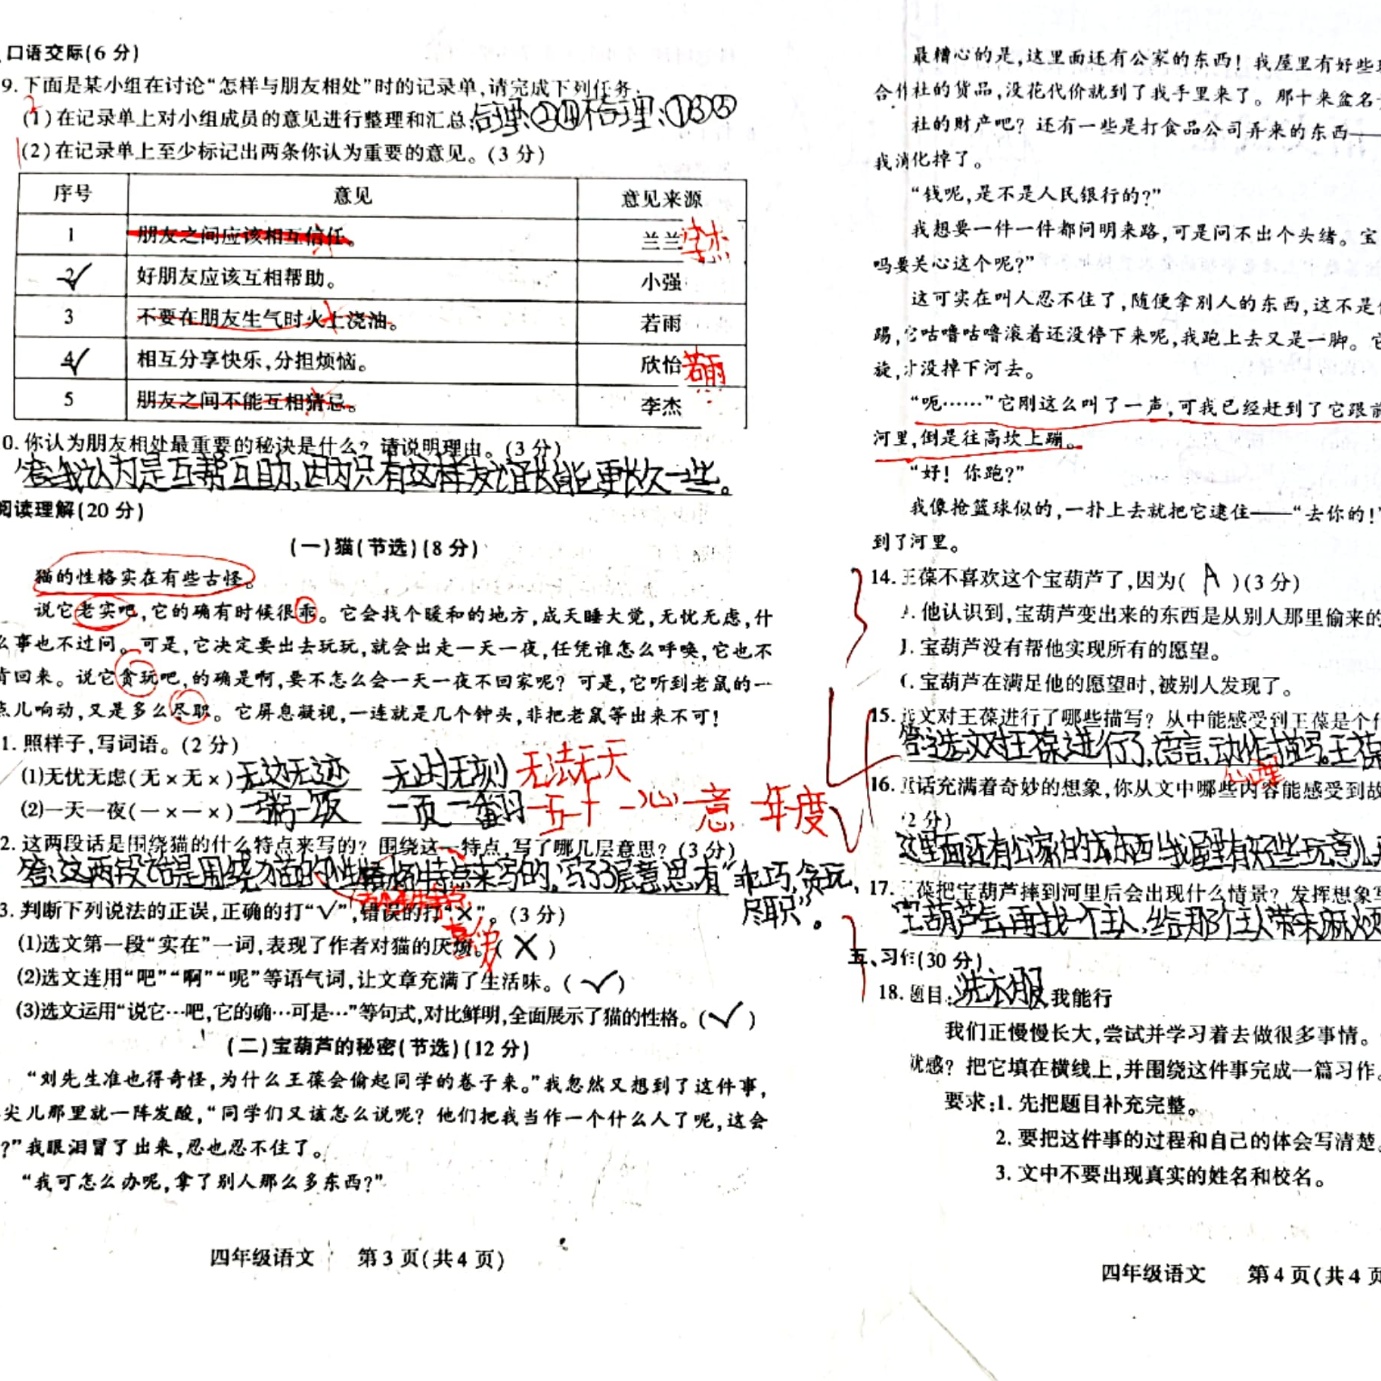 口语交际(6分)
9.下面是某小组在讨论“怎样与朋友相处”时的记录单,请完成下列任务:
(1)在记录单上对小组成员的意见进行整理和汇总:合理:②④不合理:①③⑤
(2)在记录单上至少标记出两条你认为重要的意见。(3分)
序号 意见 意见来源
1 朋友之间应该相互信任。 兰兰 李杰
2 好朋友应该互相帮助。 小强
3 不要在朋友生气时火上浇油。 若雨
4 相互分享快乐,分担烦恼。 欣怡 若雨
5 朋友之间不能互相猜忌。 李杰
0.你认为朋友相处最重要的秘诀是什么?请说明理由。(3分)
答:我认为是互帮互助,因为只有这样友谊才能更长久一些。
阅读理解(20分)
(一)猫(节选)(8分)
猫的性格实在有些古怪。
说它老实吧,它的确有时候很乖。它会找个暖和的地方,成天睡大觉,无忧无虑,什
么事也不过问。可是,它决定要出去玩玩,就会出走一天一夜,任凭谁怎么呼唤,它也不
肯回来。说它贪玩吧,的确是啊,要不怎么会一天一夜不回家呢?可是,它听到老鼠的一
点儿响动,又是多么尽职。它屏息凝视,一连就是几个钟头,非把老鼠等出来不可!
1.照样子,写词语。(2分)
(1)无忧无虑(无×无×) 无边无迹 无时无刻 无法无天
(2)一天一夜(一×一×) 一粥一饭 一页一翻 一五一十 一心一意 一年一度
2.这两段话是围绕猫的什么特点来写的?围绕这一特点,写了哪几层意思?(3分)
答:这两段话是围绕猫的性格的特点来写的,写了3层意思,有“乖巧,贪玩,
尽职”。
3.判断下列说法的正误,正确的打“√”,错误的打“×”。(3分)
(1)选文第一段“实在”一词,表现了作者对猫的厌烦。(×)
喜爱
(2)选文连用“吧”“啊”“呢”等语气词,让文章充满了生活味。(√)
(3)选文运用“说它…吧,它的确…可是…”等句式,对比鲜明,全面展示了猫的性格。(√)
(二)宝葫芦的秘密(节选)(12分)
“刘先生准也得奇怪,为什么王葆会偷起同学的卷子来。”我忽然又想到了这件事,
尖儿那里就一阵发酸,“同学们又该怎么说呢?他们把我当作一个什么人了呢,这会
?”我眼泪冒了出来,忍也忍不住了。
“我可怎么办呢,拿了别人那么多东西?”
四年级语文 第3页(共4页)
最糟心的是,这里面还有公家的东西!我屋里有好些
合作社的货品,没花代价就到了我手里来了。那十来盆名
社的财产吧?还有一些是打食品公司弄来的东西——
我消化掉了。
“钱呢,是不是人民银行的?”
我想要一件一件都问明来路,可是问不出个头绪。宝
吗要关心这个呢?”
这可实在叫人忍不住了,随便拿别人的东西,这不是
踢,它咕噜咕噜滚着还没停下来呢,我跑上去又是一脚。它
旋,才没掉下河去。
“呃……”它刚这么叫了一声,可我已经赶到了它跟前
河里,倒是往高坎上蹦。
“好!你跑?”
我像抢篮球似的,一扑上去就把它逮住——“去你的!”
到了河里。
14.王葆不喜欢这个宝葫芦了,因为( A )(3分)
A.他认识到,宝葫芦变出来的东西是从别人那里偷来的
B.宝葫芦没有帮他实现所有的愿望。
C.宝葫芦在满足他的愿望时,被别人发现了。
15.选文对王葆进行了哪些描写?从中能感受到王葆是个什
答:选文对王葆进行了,语言,动作描写。王葆
心理
16.童话充满着奇妙的想象,你从文中哪些内容能感受到故
(2分)
这里面还有公家的东西!我屋里有好些玩意儿
17.王葆把宝葫芦摔到河里后会出现什么情景?发挥想象写
宝葫芦会再找一个主人,给那个主人带来麻烦
五、习作(30分)
18.题目:洗衣服,我能行
我们正慢慢长大,尝试并学习着去做很多事情。
就感?把它填在横线上,并围绕这件事完成一篇习作。
要求:1.先把题目补充完整。
2.要把这件事的过程和自己的体会写清楚。
3.文中不要出现真实的姓名和校名。
四年级语文 第4页(共4页